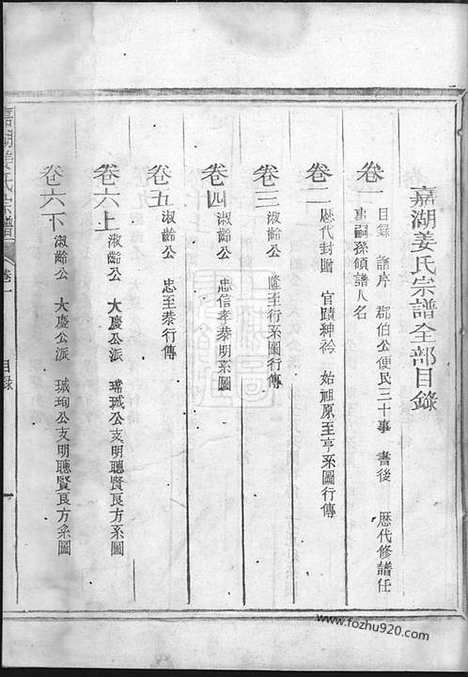 嘉湖姜氏宗譜全部目錄
卷一 目錄 譜序 郡伯公便民三十事 書後 歷代修譜任
事嗣孫領譜人名
卷二 歷代封贈 官蹟紳衿 始祖原至亨系圖行傳
卷三 淑齡公 隆至行系圖行傳
卷四 淑齡公 忠信孝恭明系圖
卷五 淑齡公 忠至恭行傳
卷六上 淑齡公 大慶公派 瑺珹公支明聽賢良方系圖
卷六下 淑齡公 大慶公派 珹珣公支明聽賢良方系圖
嘉湖姜氏宗譜 卷一 目錄 一
www.fozhu920.com